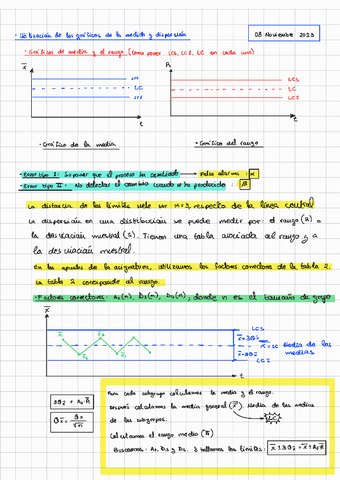 · Utilización de los gráficos de la medida y dispersión
08 Noviembre 2023
· Gráficos de media y el rango (Cómo poner LCS, LCI, LC en cada uno)
X̄
R
LCS
LC
LCI
LCS
LC
LCI
t
t
· Gráfico de la media
· Gráfico del rango
· Error tipo I: Suponer que el proceso ha cambiado → falsa alarma : α
· Error tipo II: No detectar el cambio cuando se ha producido : β
La distancia de los límites suele ser k=3, respecto de la línea central
La dispersión en una distribución se puede medir por: el rango (R) o
la desviación muestral (S). Tienen una tabla asociada al rango y a
la desviación muestral.
En los apuntes de la asignatura, utilizamos los factores correctores de la tabla 2.
La tabla 2 corresponde al rango.
· Factores correctores: A₂(n), D₃(n), D₄(n); donde n es el tamaño de grupo
X̄
LCS
LCI
Media de las
medias
t
Para cada subgrupo calculamos la media y el rango.
Después calculamos la media general (X̿). Media de las medias
de los subgrupos.
LC
Calculamos el rango medio (R̄)
Buscamos: A₂, D₃ y D₄. y hallamos los límites: